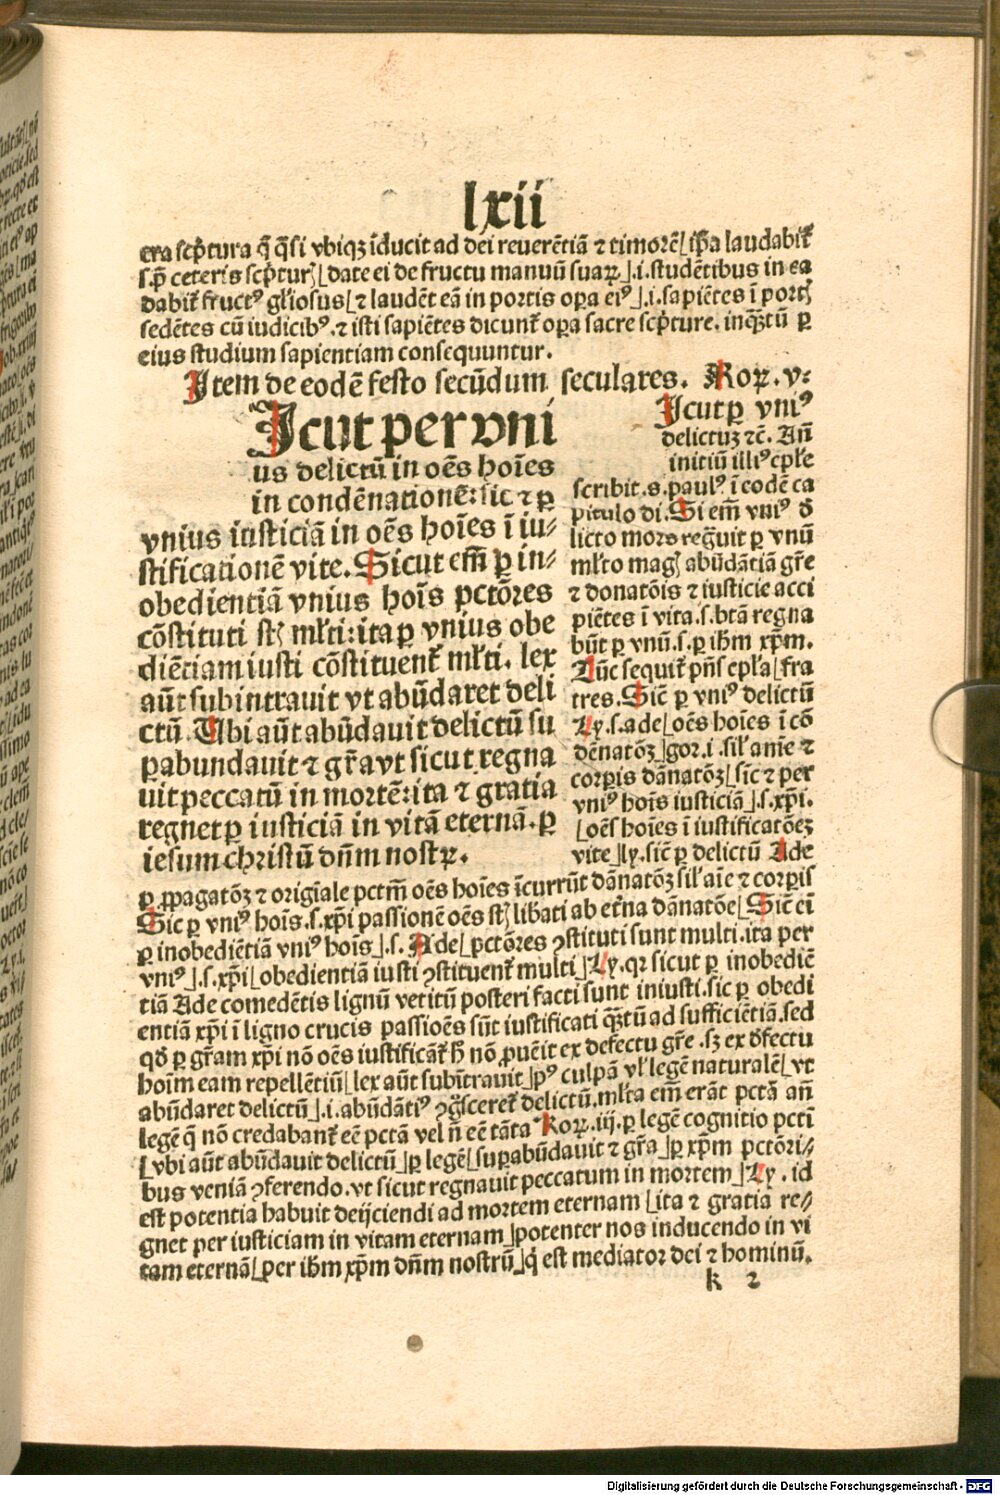 lxii
cra scp̄tura q̄ q̄si vbiqꝫ īducit ad dei reuerētiā ⁊ timorē⌊ip̄a laudabit̄
s.p̄ ceteris scp̄turꝭ⌊date ei de fructu manuū suaꝝ⌋.i.studētibus in ea
dabit̄ fructꝰ gl̄iosus⌊⁊ laudēt eā in portis oꝑa eiꝰ⌋.i.sapiētes ī portꝭ
sedētes cū iudicibꝰ.⁊ isti sapiētes dicunt̄ oꝑa sacre scp̄ture.inqꝫtū ꝑ
eius studium sapientiam consequuntur.
Item de eodē festo secūdum seculares. Roꝝ.v:
Sicut per vni
us delictū in oēs hoīes
in condēnationē:sic ⁊ ꝑ
vnius iusticiā in oēs hoīes ī iu⸗
stificationē vite. Sicut em̄ ꝑ in⸗
obedientiā vnius hoīs pctōres
cōstituti st̄ mlt̄i:ita ꝑ vnius obe
diētiam iusti cōstituent̄ mlt̄i. lex
aūt subintrauit vt abūdaret deli
ctū. Ubi aūt abūdauit delictū su
ꝑabundauit ⁊ gr̄a vt sicut regna
uit peccatū in mortē:ita ⁊ gratia
regnet ꝑ iusticiā in vitā eternā.ꝑ
iesum christū dn̄m nostꝝ.
Sicut ꝑ vniꝰ
delictuꝫ ⁊c̄. An̄
initiū illiꝰ ep̄le
scribit.s.paulꝰ ī eodē ca
pitulo di. Si em̄ vniꝰ d̄
licto mors regͣuit ꝑ vnū
ml̄to magꝭ abūdātiā gr̄e
⁊ donatōis ⁊ iusticie acci
piētes ī vita.s.btā regna
būt ꝑ vnū.s.ꝑ ihm̄ xp̄m.
Tūc sequit̄ pn̄s ep̄la⌊fra
tres. Sic̄ ꝑ vniꝰ delictū
Ly.s.ade⌊oēs hoīes ī cō
dēnatōꝫ⌋gor.i.sil̄ anīe ⁊
corꝑis dānatōꝫ⌊sic̄ ⁊ per
vniꝰ hoīs iusticiā⌋.s.xp̄i.
⌊oēs hoīes ī iustificatōeꝫ
vite⌋ly.sic̄ ꝑ delictū Ade
ꝑ ꝓpagatōꝫ ⁊ origīale pctm̄ oēs hoīes īcurrūt dānatōꝫ sil̄ aīe ⁊ corꝑis
Sic ꝑ vniꝰ hoīs.s.xp̄i passionē oēs stꝭ lib̄ati ab et̄na dānatōe⌊Sic̄ eī
ꝑ inobediētiā vniꝰ hoīs⌋.s. Ade⌊pctōres ꝯstituti sunt multi.ita per
vniꝰ⌋.s.xp̄i⌊obedientiā iusti ꝯstituent̄ multi⌋Ly.qꝛ sicut ꝑ inobediē
tiā Ade comedētis lignū vetitū posteri facti sunt iniusti.sic ꝑ obedi
entiā xp̄i ī ligno crucis passiōes sūt iustificati qꝫtū ad sufficiētiā.sed
qd̄ ꝑ gr̄am xp̄i nō oēs iustificāt̄ h̄ nō ꝓuēit ex defectu gr̄e.sꝫ ex d̄fectu
hoīm eam repellētiū⌊lex aūt subītrauit⌋pꝰ culpā vl̄ legē naturalē⌊vt
abūdaret delictū⌋.i.abūdātiꝰ ꝯgͣsceret̄ delictū.ml̄ta em̄ erāt pctā an̄
legē q̄ nō credabant̄ eē pctā vel n̄ eē tāta Roꝝ.iij.ꝑ legē cognitio pcti
⌊vbi aūt abūdauit delictū⌋ꝑ legē⌊suꝑabūdauit ⁊ gr̄a⌋ꝑ xp̄m pctōri⸗
bus veniā ꝯferendo.vt sicut regnauit peccatum in mortem⌋Ly.id
est potentia habuit deijciendi ad mortem eternam⌊ita ⁊ gratia re⸗
gnet per iusticiam in vitam eternam⌋potenter nos inducendo in vi
tam eternā⌊per ihm̄ xp̄m dn̄m nostrū⌋q̇ est mediator dei ⁊ hominū.
k 2
Digitalisierung gefördert durch die Deutsche Forschungsgemeinschaft - DFG